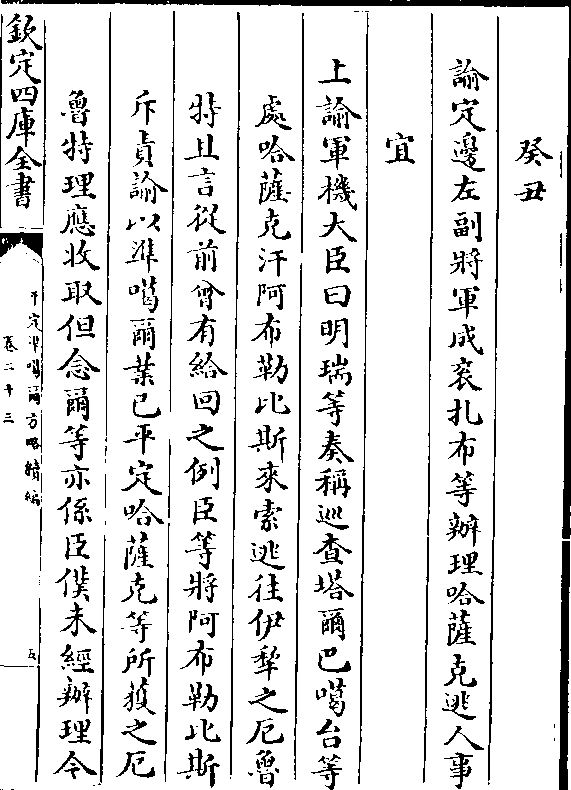 癸丑
諭定邊左副將軍成衮扎布等辦理哈薩克逃人事
宜
上諭軍機大臣曰明瑞等奏稱巡查塔爾巴噶台等
處哈薩克汗阿布勒比斯來索逃往伊犁之厄魯
特且言從前曾有給回之例臣等將阿布勒比斯
斥責諭以準噶爾業已平定哈薩克等所獲之厄
魯特理應收取但念爾等亦係臣僕未經辦理今
欽定四庫全書
平定準噶爾方略續編
卷二十三
五